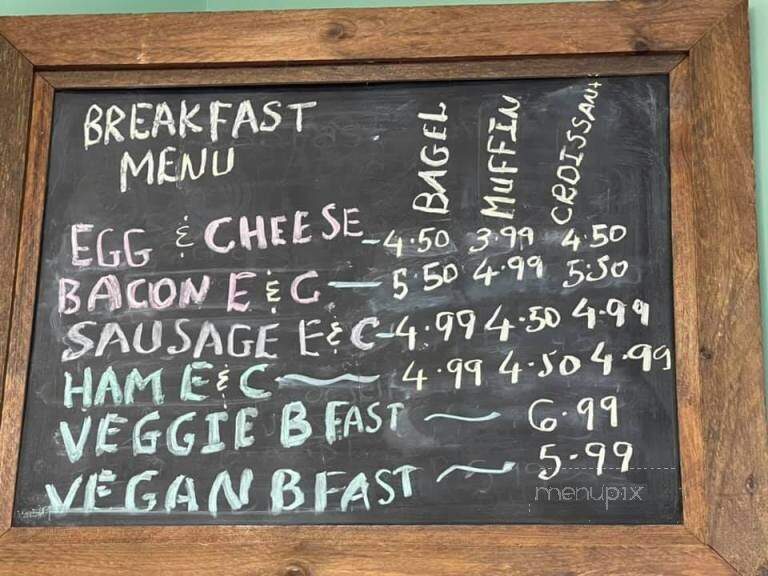 BREAKFAST
MENU
BAGEL MUFFIN CROISSANT
EGG & CHEESE - 4.50 3.99 4.50
BACON E & C — 5.50 4.99 5.50
SAUSAGE E & C - 4.99 4.50 4.99
HAM E & C — 4.99 4.50 4.99
VEGGIE B FAST — 6.99
VEGAN B FAST — 5.99
menupix